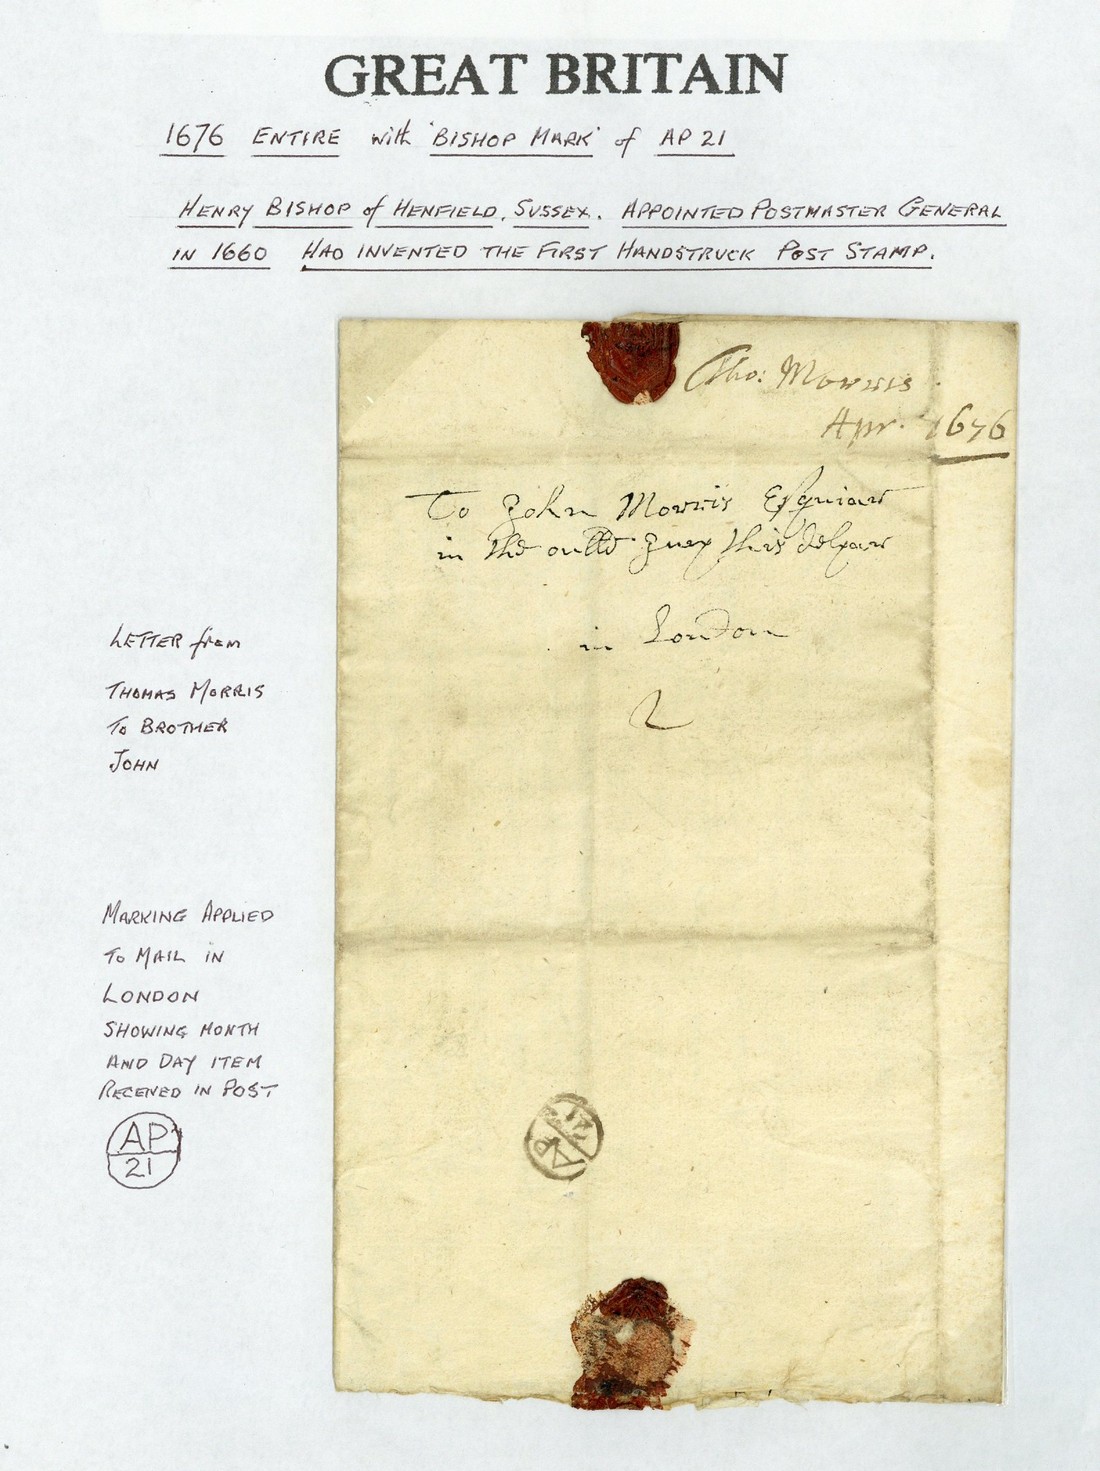 GREAT BRITAIN
1676 ENTIRE with 'BISHOP MARK' of AP 21
HENRY BISHOP of HENFIELD, SUSSEX. APPOINTED POSTMASTER GENERAL
IN 1660 HAD INVENTED THE FIRST HANDSTRUCK POST STAMP.
Tho: Morris
Apr. 1676
To John Morris Esquiar
in the this
in London
2
LETTER from
THOMAS MORRIS
TO BROTHER
JOHN
MARKING APPLIED
TO MAIL IN
LONDON
SHOWING MONTH
AND DAY ITEM
RECEIVED IN POST
AP
21
AP
21